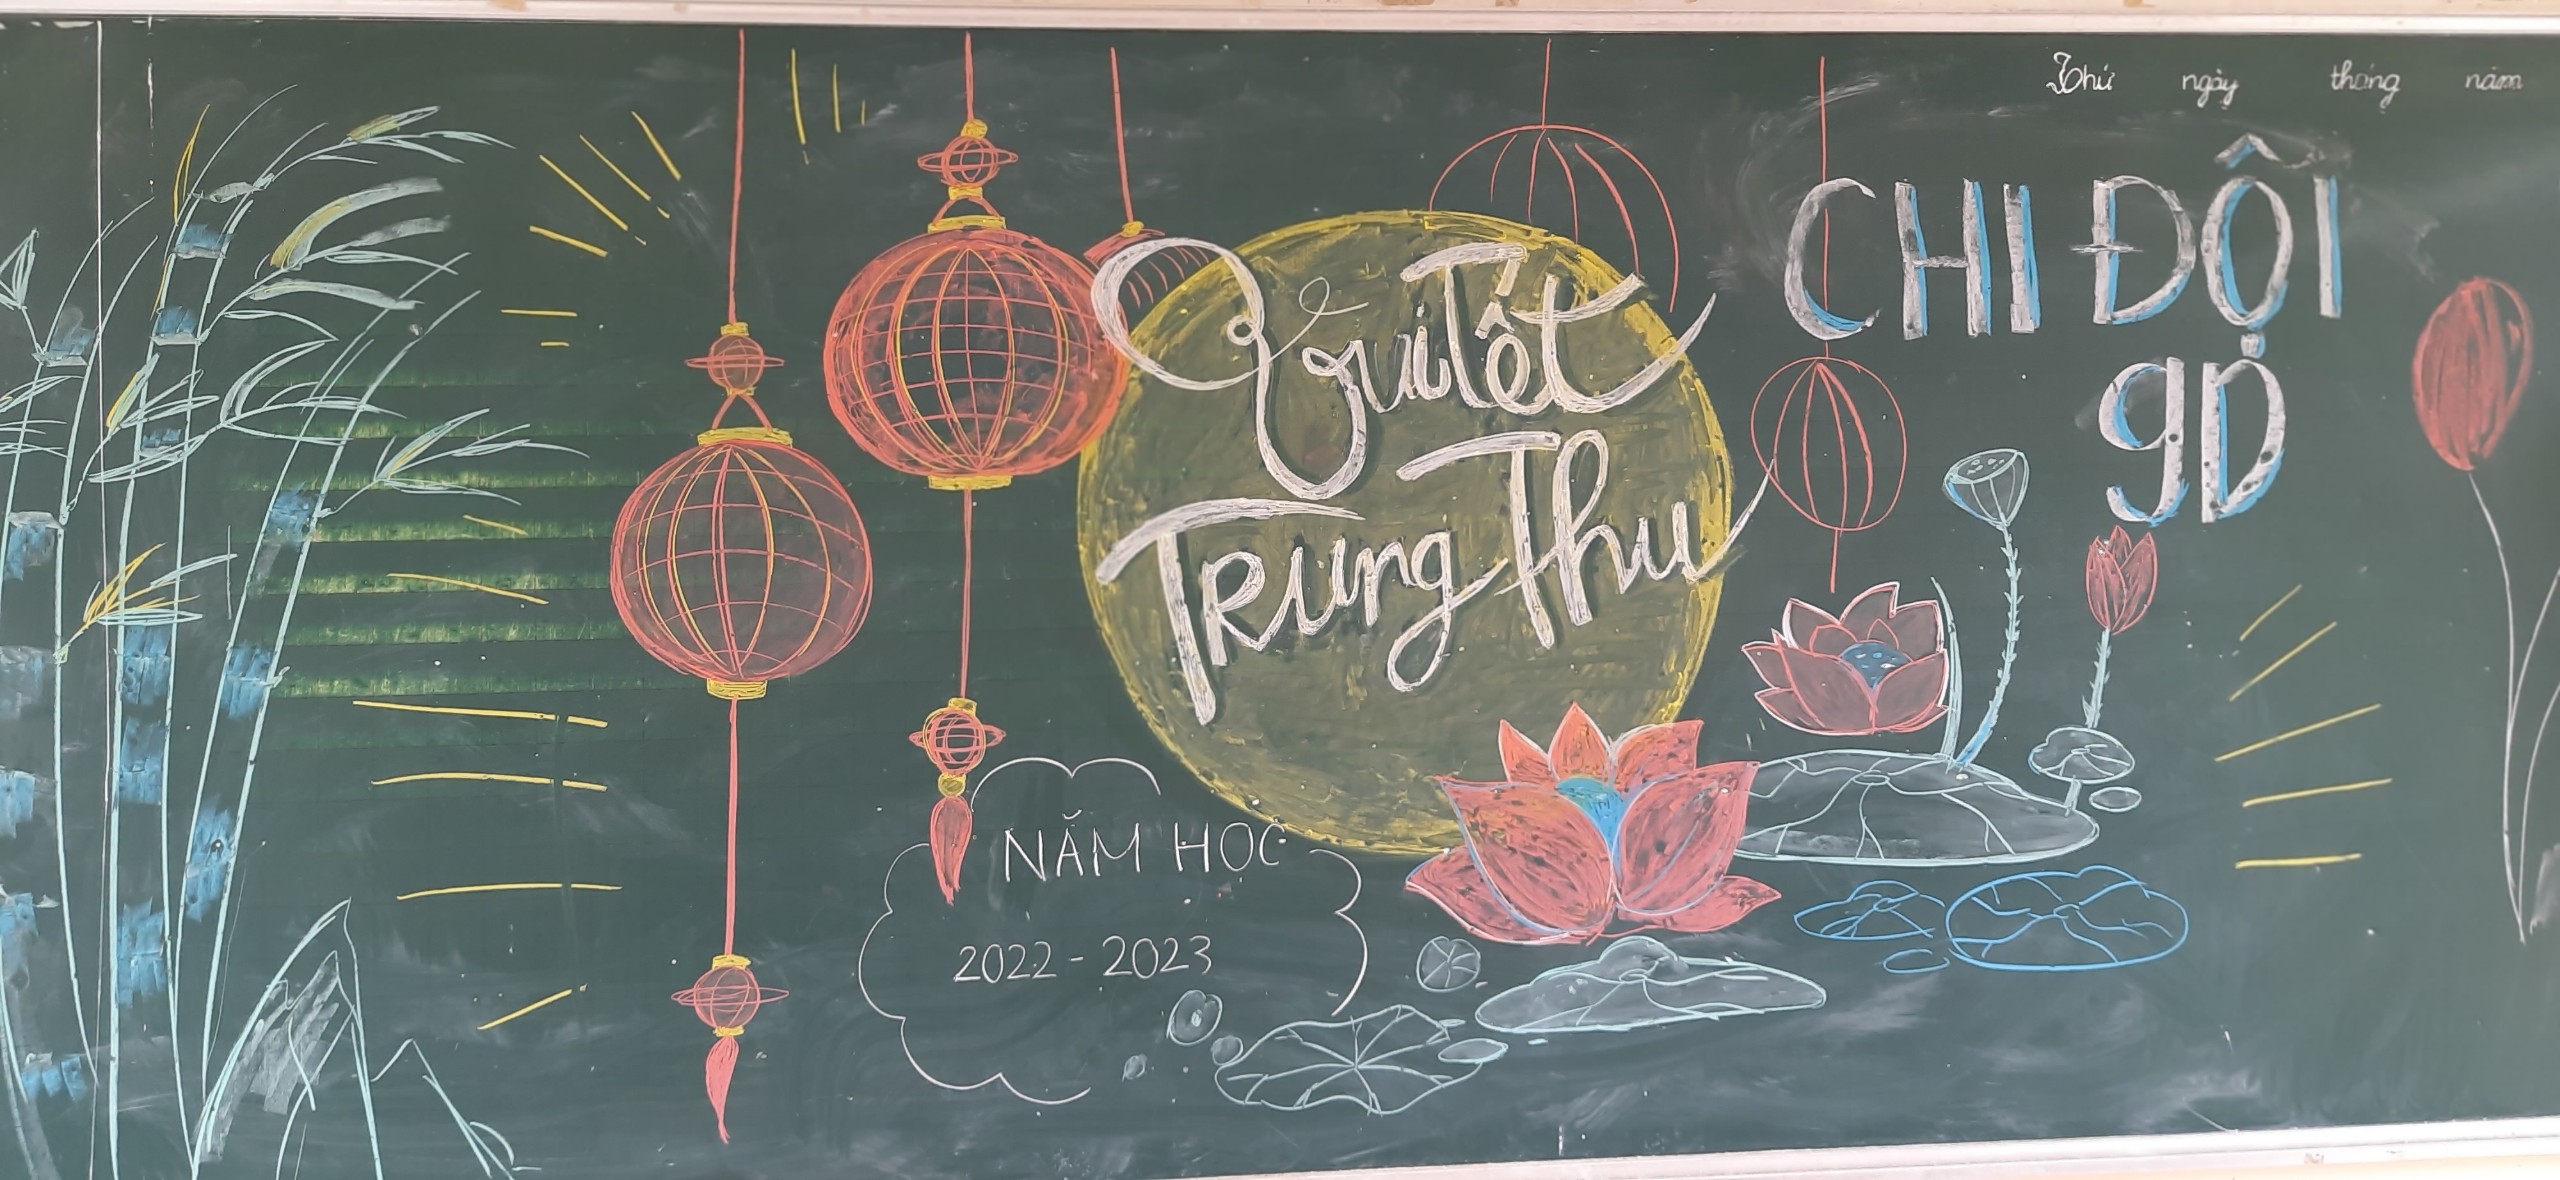 Thứ ngày tháng năm
CHI ĐỘI
9D
Vui Tết
Trung Thu
NĂM HỌC
2022 - 2023